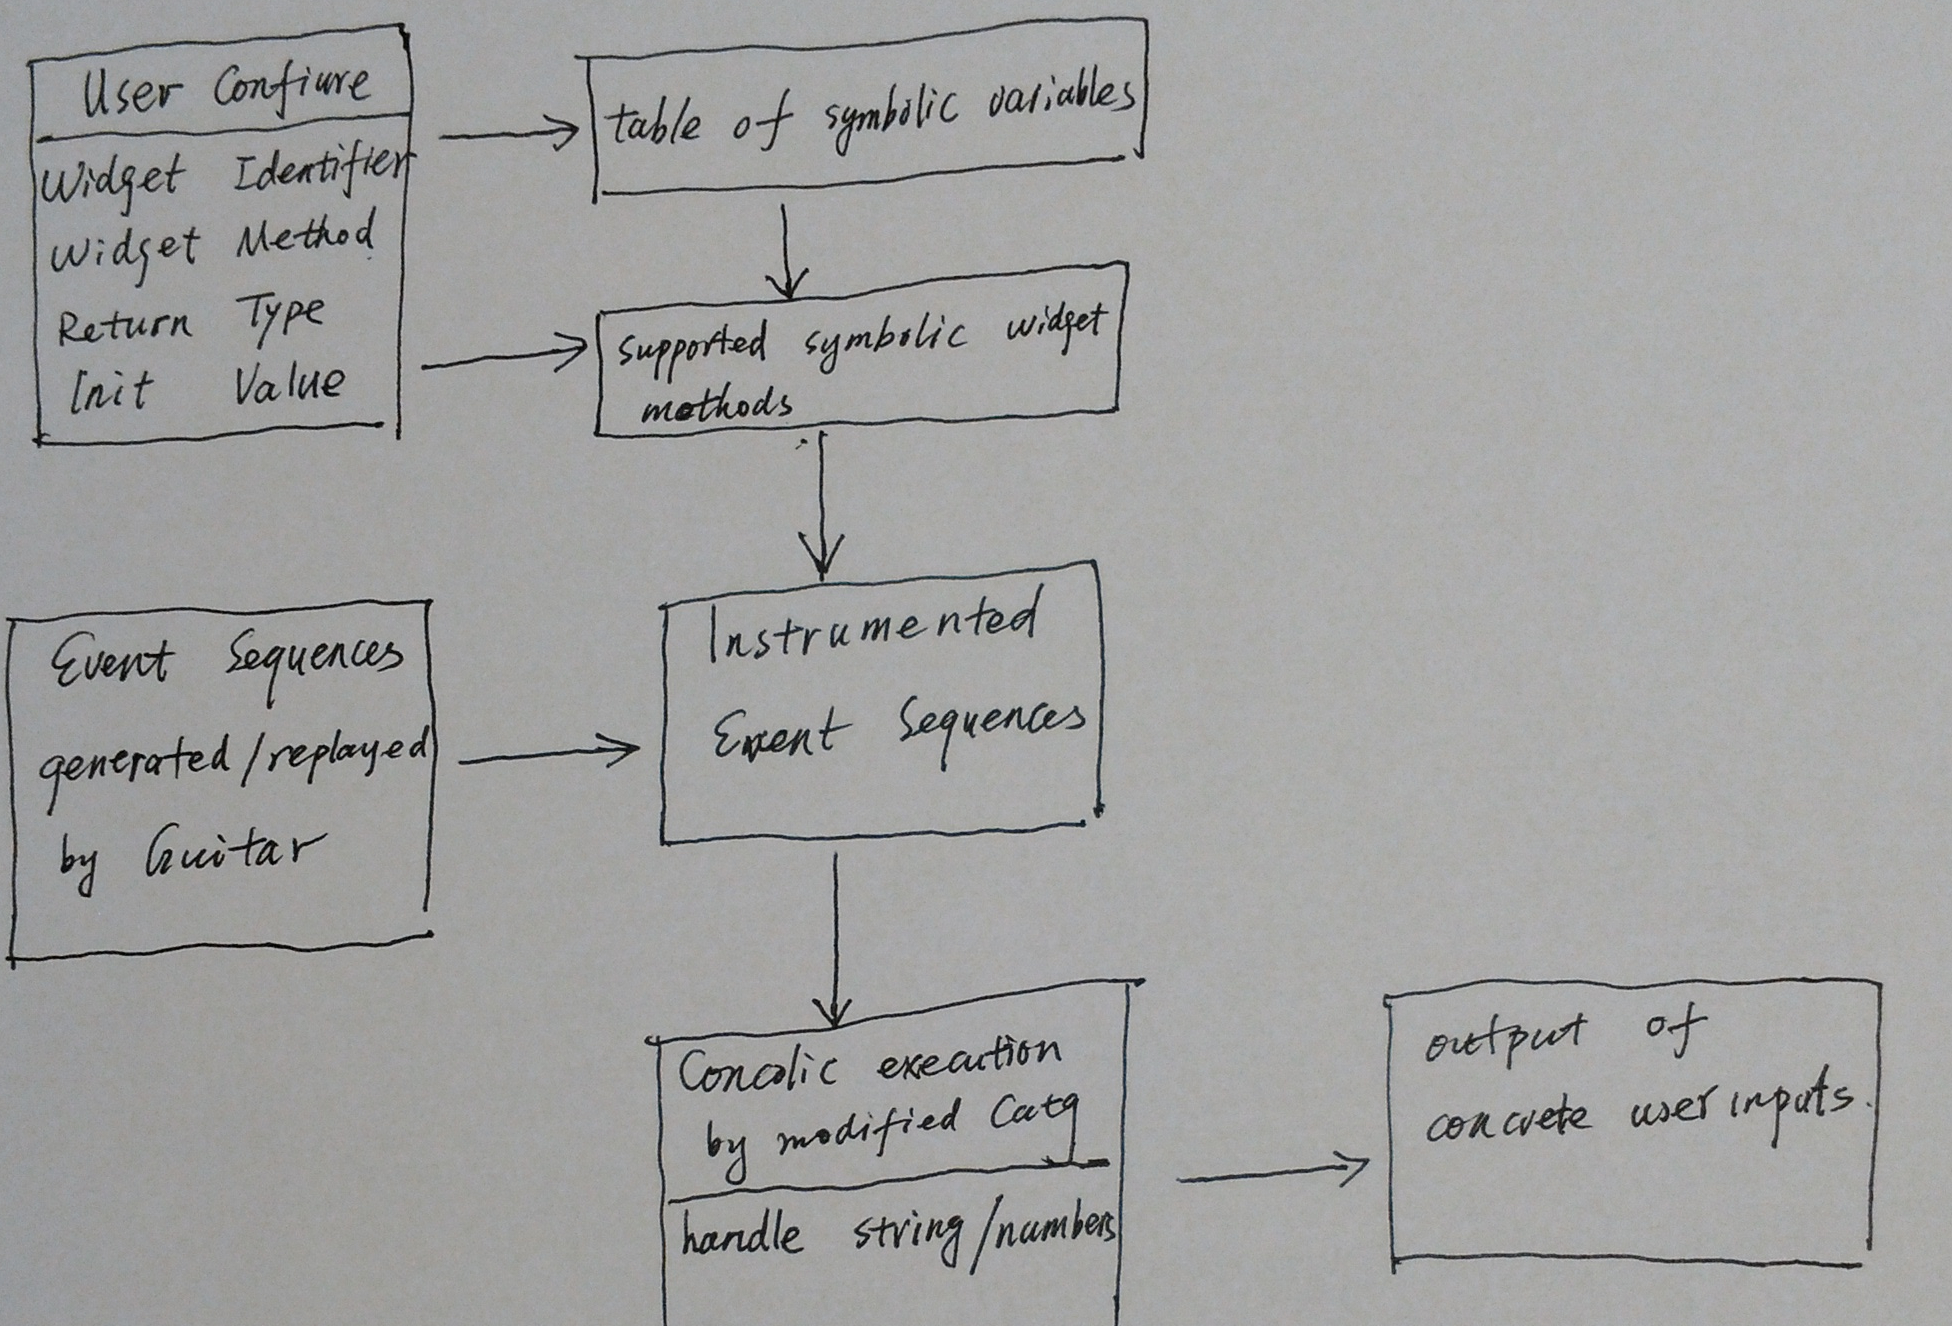 User Confiure
Widget Identifier
Widget Method
Return Type
Init Value
table of symbolic variables
supported symbolic widget
methods
Event Sequences
generated/replayed
by Guitar
Instrumented
Event Sequences
Concolic execution
by modified Catg
handle string/numbers
output of
concrete user inputs.